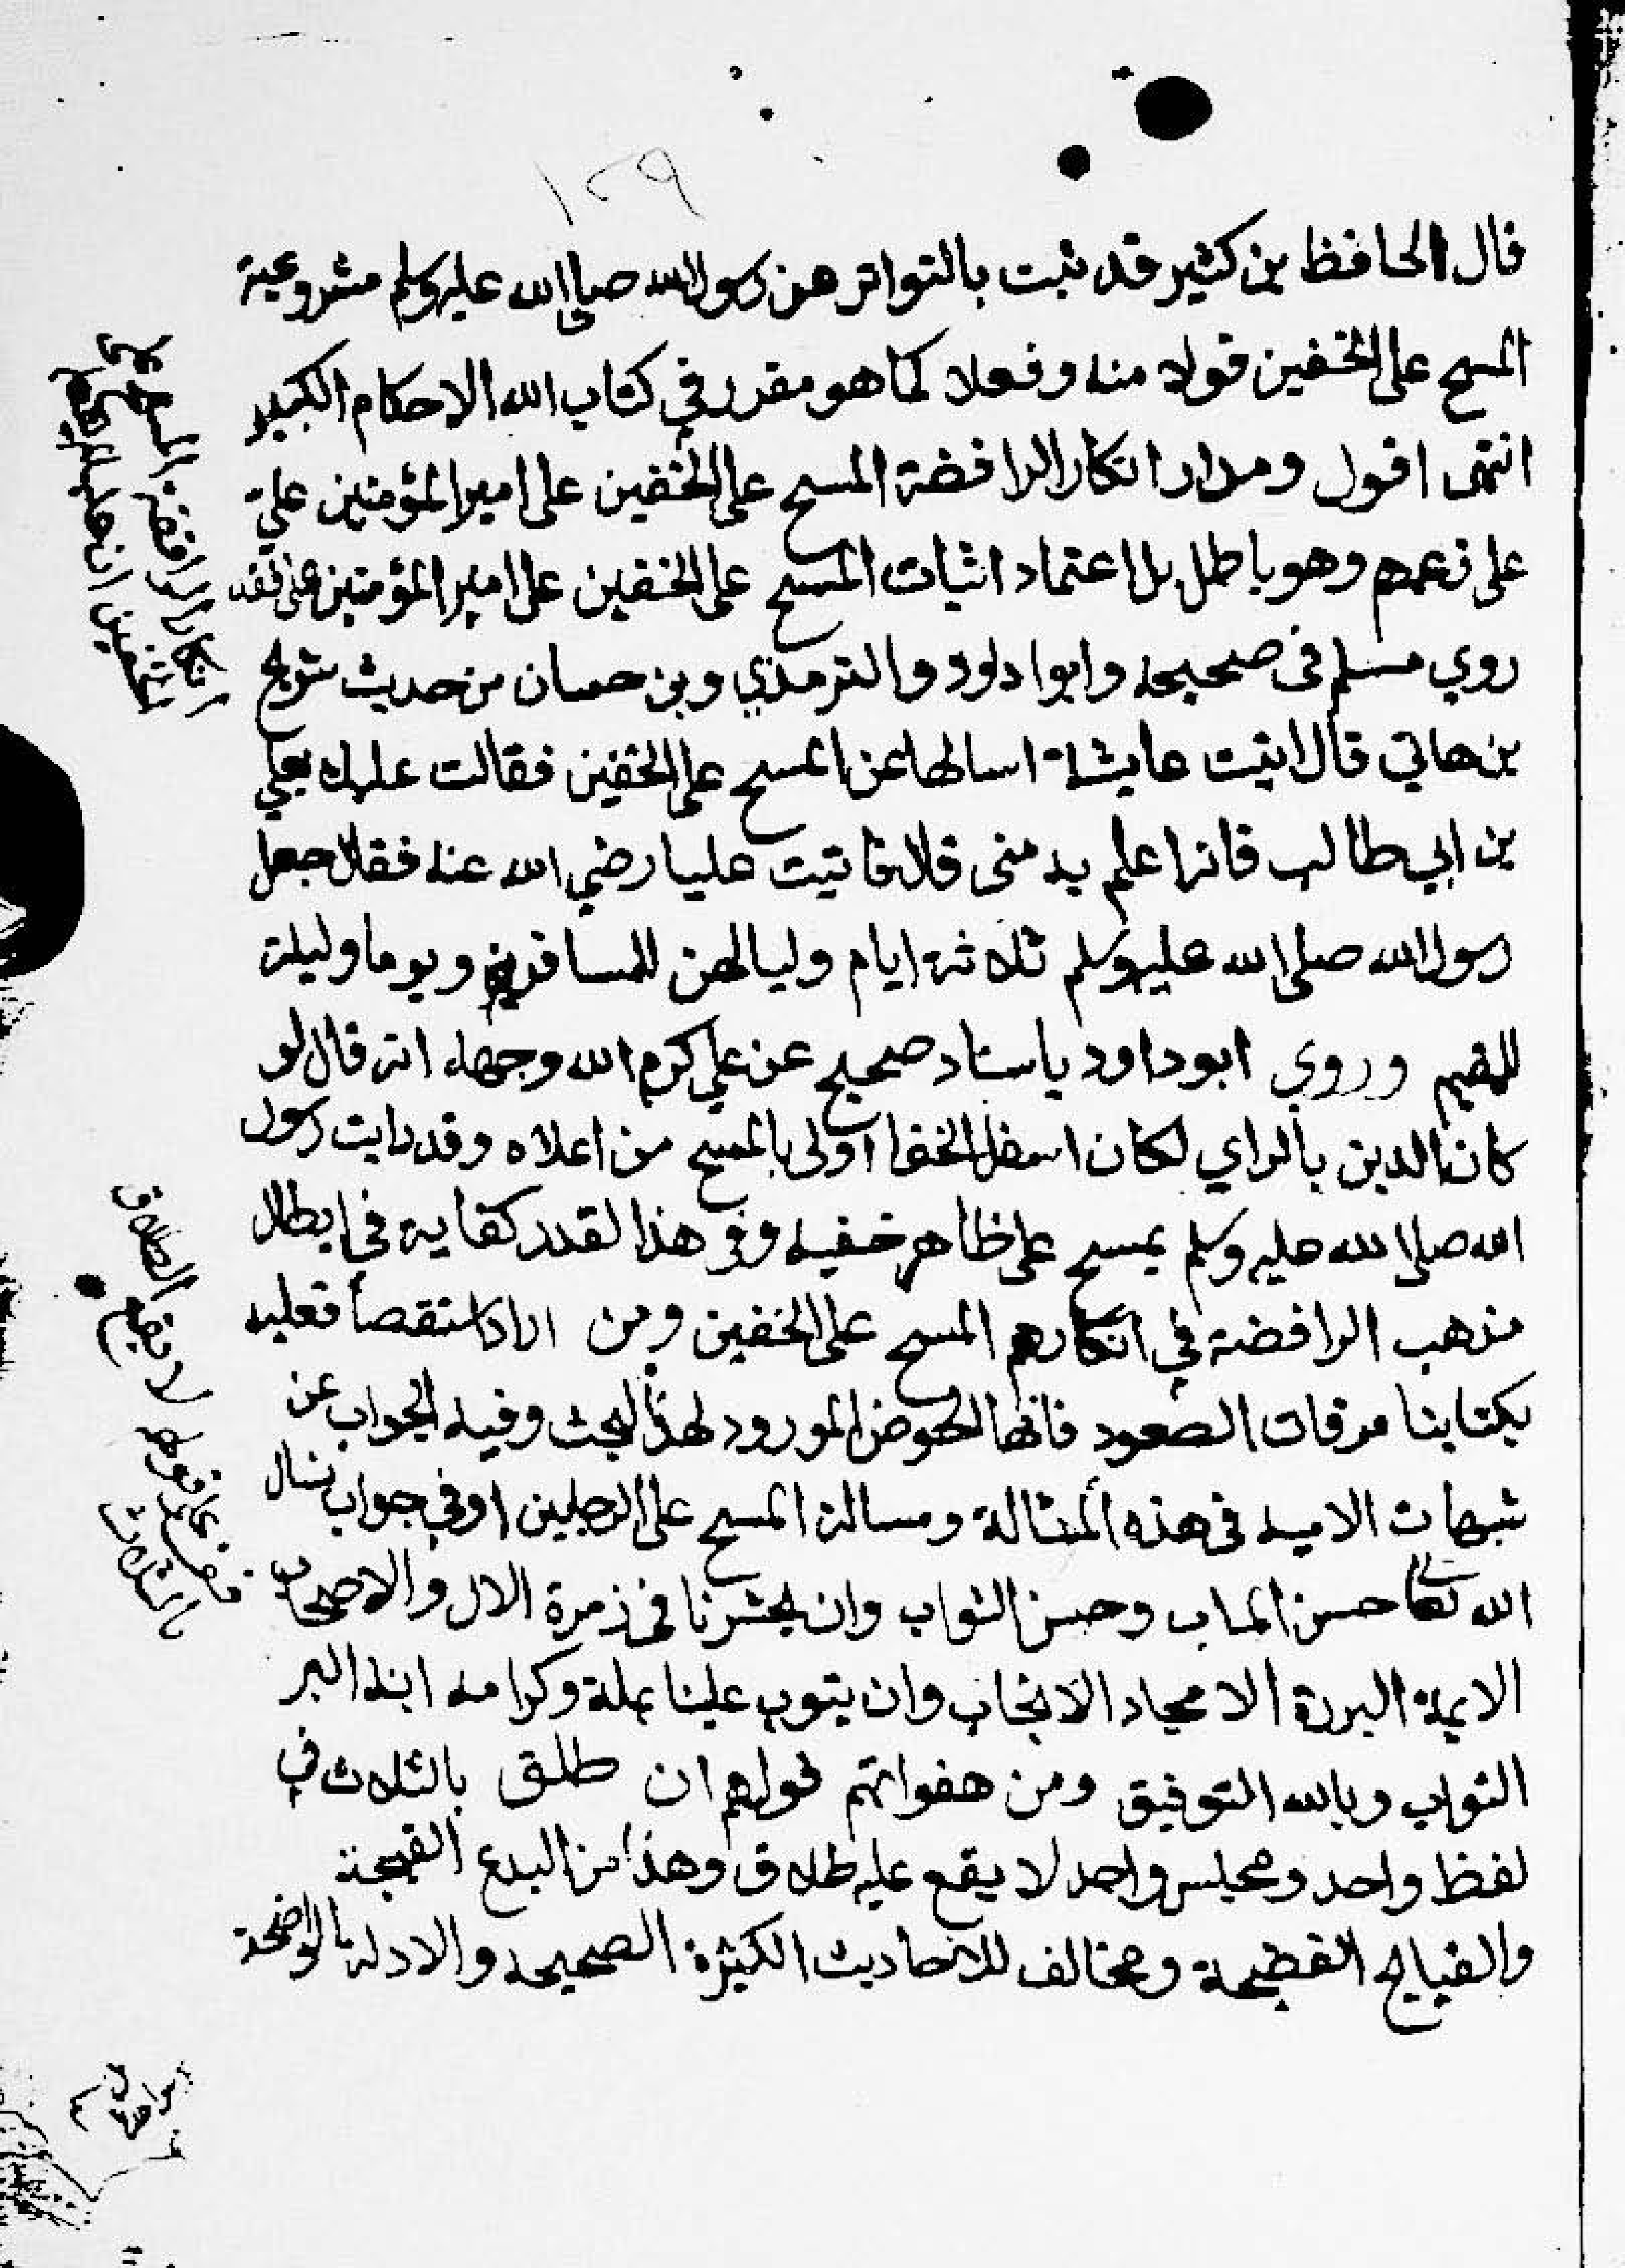 ١٢٩
قال الحافظ بن كثير قد ثبت بالتواتر عن رسول الله صلى الله عليه وسلم مشروعية
المسح على الخفين قولا منه وفعلا كما هو مقرر في كتاب الله الاحكام الكبير
انتهى اقول ومدار انكار الرافضة المسح على الخفين على امير المؤمنين علي
على زعمهم وهو باطل بل اعتماد اثبات المسح على الخفين على امير المؤمنين
روي مسلم في صحيحه وابوا داود والترمذي وبن حسان من حديث شريح
بن هاني قال اتيت عايشة اسالها عن المسح على الخفين فقالت عليك بعلي
بن ابي طالب فانه اعلم به منى قال فاتيت عليا رضي الله عنه فقال جعل
رسول الله صلى الله عليه وسلم ثلاثة ايام ولياليهن للمسافرين ويوما وليلة
للمقيم وروي ابو داود باسناد صحيح عن علي كرم الله وجهه انه قال لو
كان الدين بالراي لكان اسفل الخف اولى بالمسح من اعلاه وقد رايت رسول
الله صلى الله عليه وسلم يمسح على ظاهر خفيه وفي هذا لقدر كفاية في ابطال
مذهب الرافضة في انكارهم المسح على الخفين ومن اراد استقصأ فعليه
بكتابنا مرقات الصعود فانها الحوض المورود لهذا البحث وفيه الجواب عن
شبهات الاميه في هذه المسالة ومسالة المسح على الرجلين اوفي جواب نسال
الله تعالى حسن الماب وحسن الثواب وان يحشرنا في زمرة الال والاصحاب
الايمة البررة الامجاد الانجاب وان يتوب علينا بمنه وكرامه انه البر
التواب وبالله التوفيق ومن هفواتهم قولهم ان طلق بالثلاث في
لفظ واحد ومجلس واحد لا يقع عليه طلاق وهذا من البدع القبيحة
والقبايح الفضيحة ومخالف للاحاديث الكثيرة الصحيحه والادلة الواضحة
انكار الرافضة المسح على
الخفين
الطلاق لا يقع
الثلاث